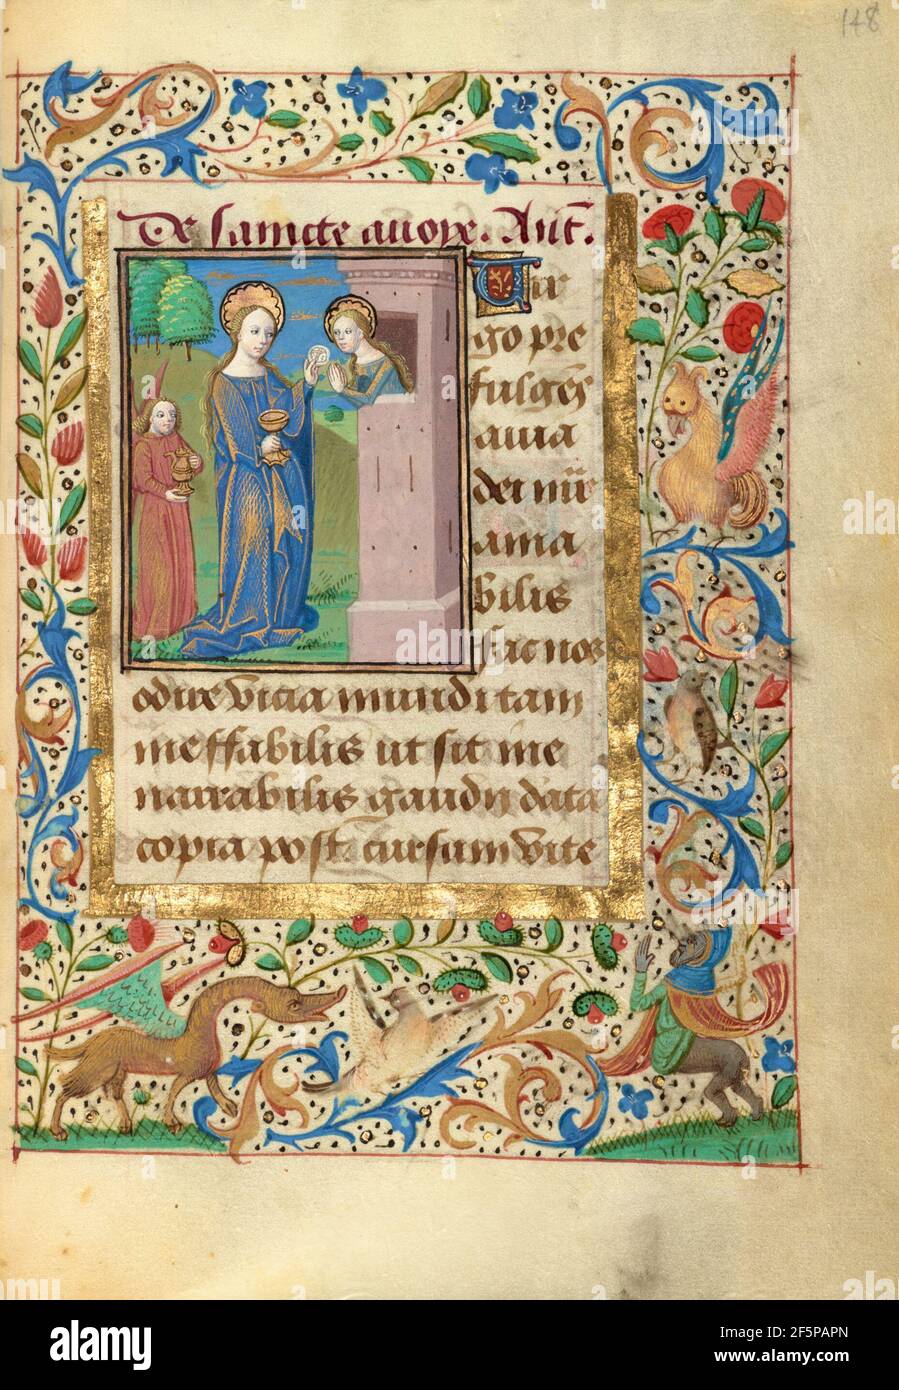 148
De sancte avoye. Ant.
Vir
go pre
fulgēs
aura
dei
ama
bilis
fac nos
o dux via mundi tam
ineffabilis ut sit ine
narrabilis gaudij data
copia post cursum vite
alamy
Image ID: 2F5PAPN
www.alamy.com